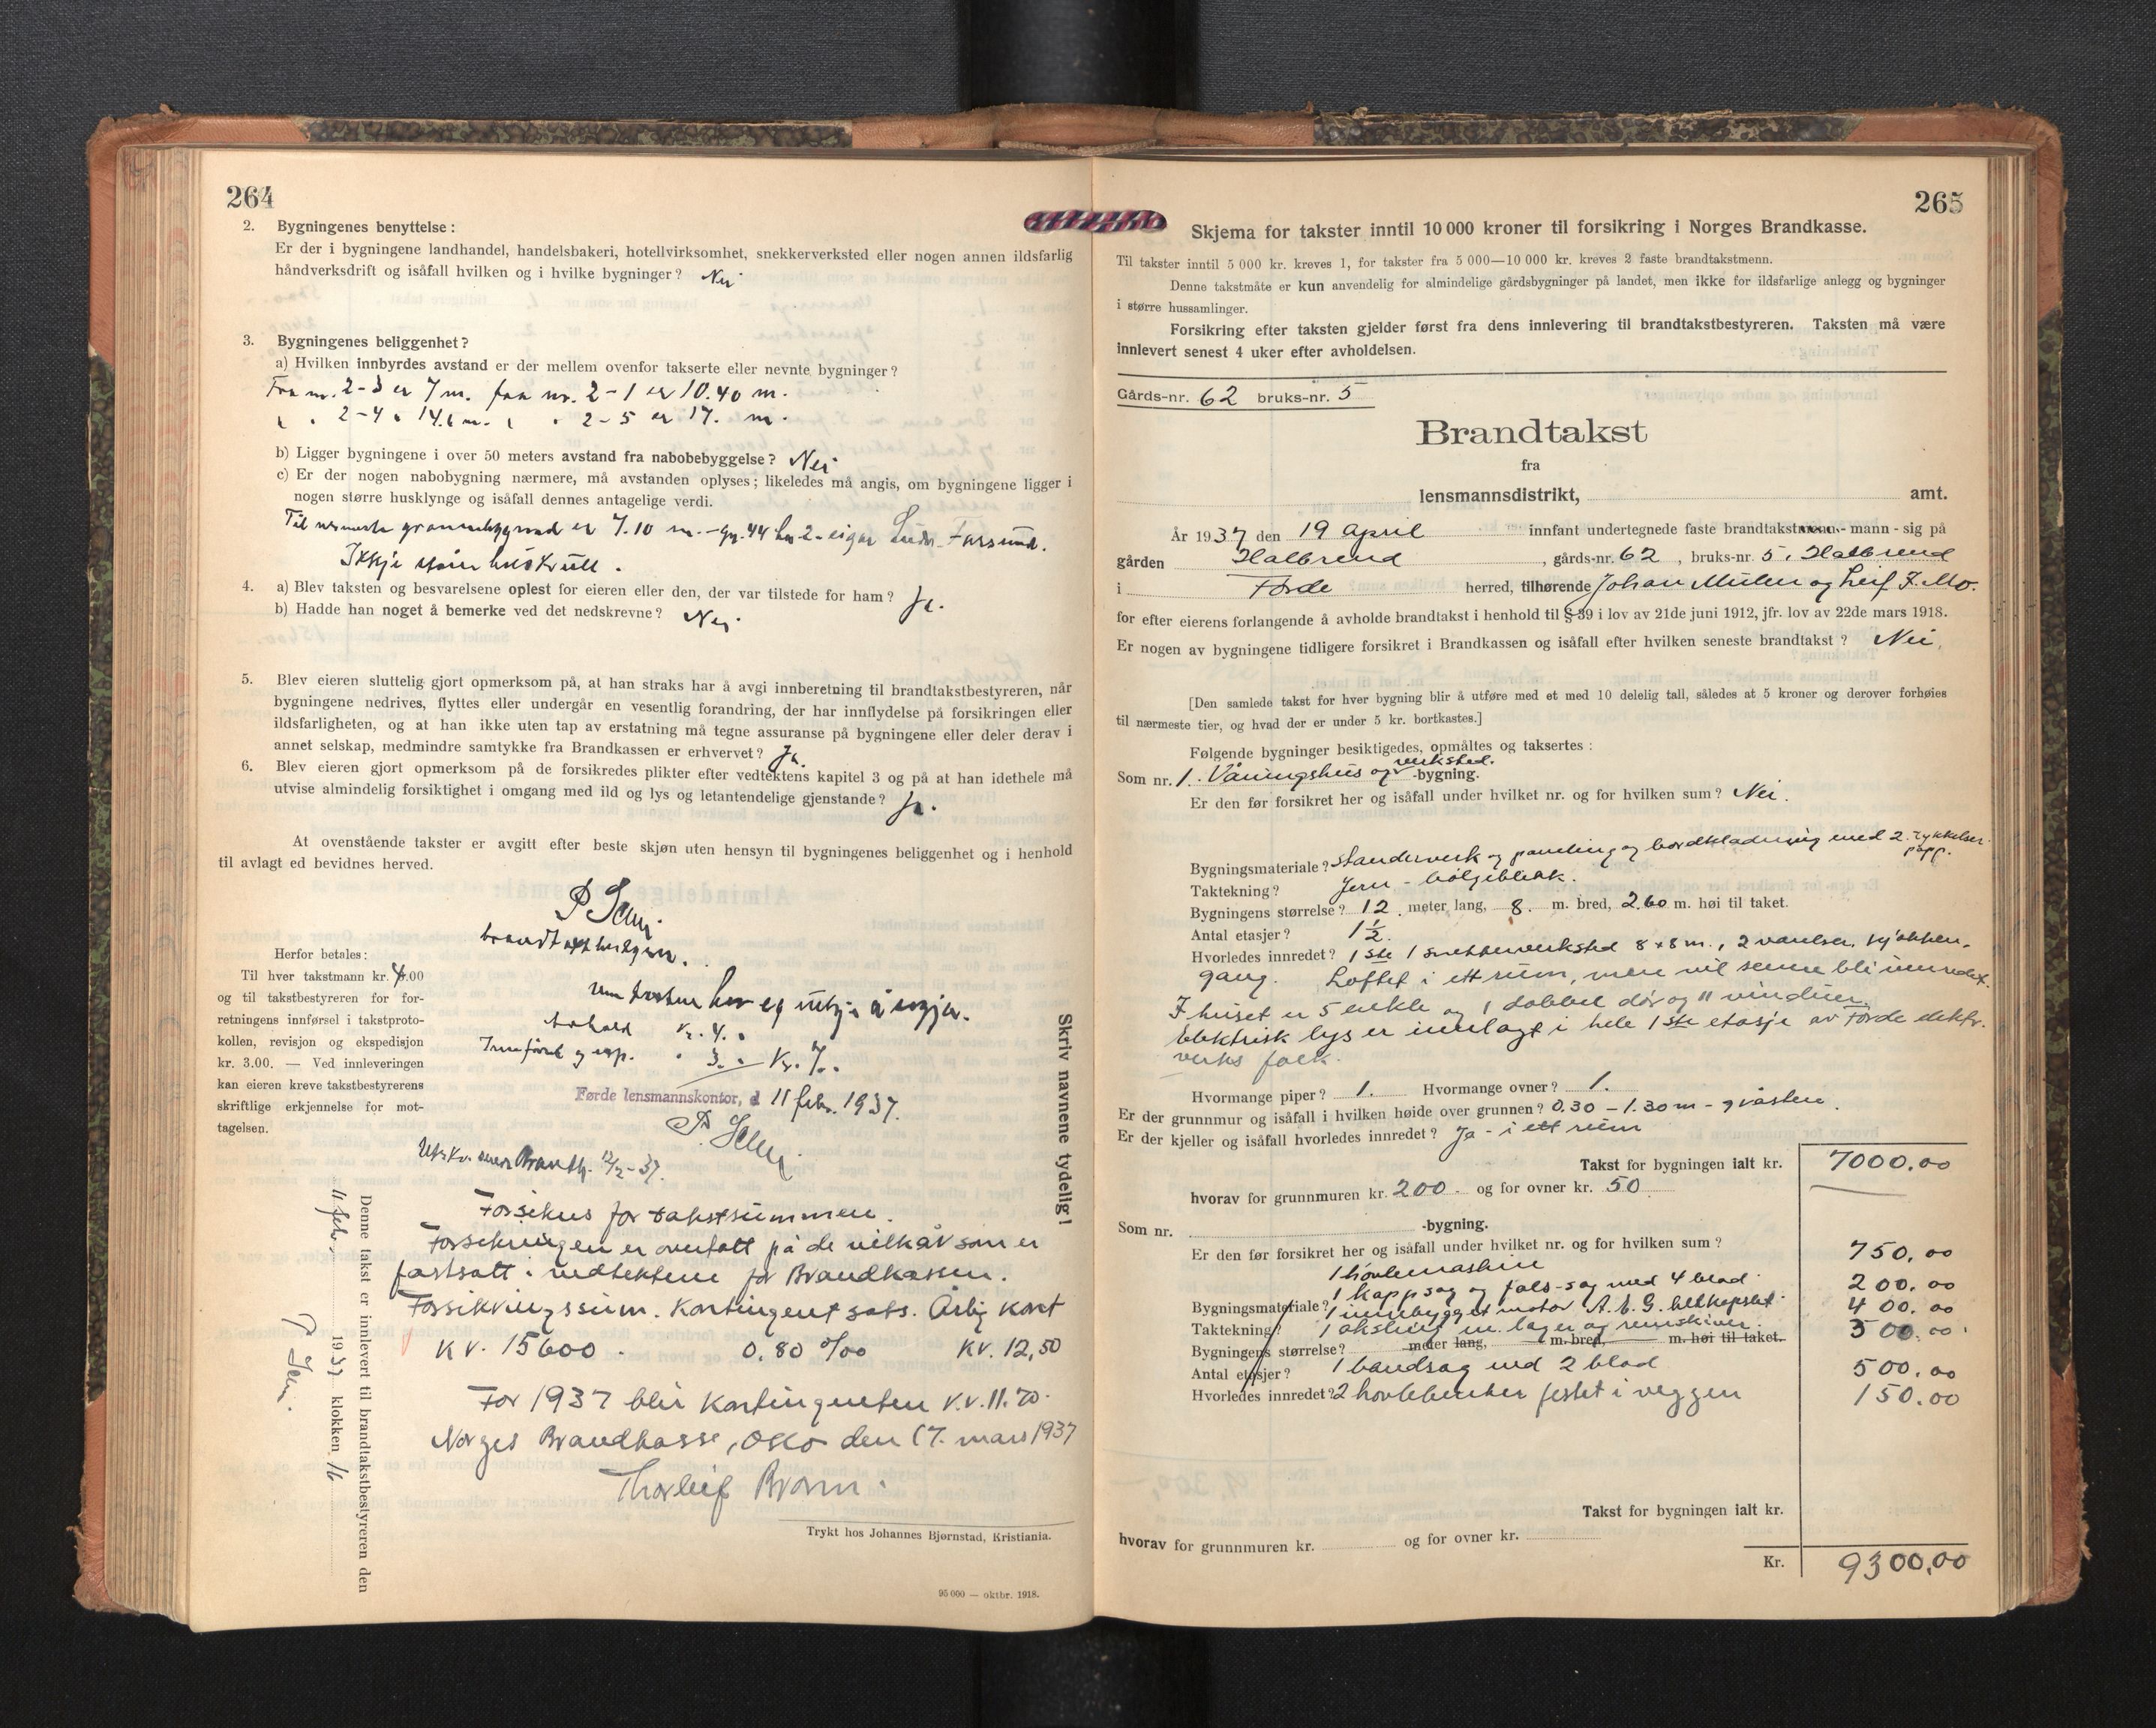 264
2. Bygningenes benyttelse :
Er der i bygningene landhandel, handelsbakeri, hotellvirksomhet, snekkerverksted eller nogen annen ildsfarlig
håndverksdrift og isåfall hvilken og i hvilke bygninger? Nei
3. Bygningenes beliggenhet?
a) Hvilken innbyrdes avstand er der mellem ovenfor takserte eller nevnte bygninger?
Fra nr. 2-3 er 7 m. fra nr. 2-1 er 10.40 m.
2-4 14.6 m. 2-5 er 17. m.
b) Ligger bygningene i over 50 meters avstand fra nabobebyggelse? Nei
c) Er der nogen nabobygning nærmere, må avstanden oplyses; likeledes må angis, om bygningene ligger i
nogen større husklynge og isåfall dennes antagelige verdi.
Til nærmeste er 7.10 m. - 44 2 - eigar Farsund.
Ikkje
4. a) Blev taksten og besvarelsene oplest for eieren eller den, der var tilstede for ham? Ja.
b) Hadde han noget å bemerke ved det nedskrevne? Nei
5. Blev eieren sluttelig gjort opmerksom på, at han straks har å avgi innberetning til brandtakstbestyreren, når
bygningene nedrives, flyttes eller undergår en vesentlig forandring, der har innflydelse på forsikringen eller
ildsfarligheten, og at han ikke uten tap av erstatning må tegne assuranse på bygningene eller deler derav i
annet selskap, medmindre samtykke fra Brandkassen er erhvervet? Ja.
6. Blev eieren gjort opmerksom på de forsikredes plikter efter vedtektens kapitel 3 og på at han idethele må
utvise almindelig forsiktighet i omgang med ild og lys og letantendelige gjenstande? Ja.
At ovenstående takster er avgitt efter beste skjøn uten hensyn til bygningenes beliggenhet og i henhold
til avlagt ed bevidnes herved.
Herfor betales:
Til hver takstmann kr. 4.00
og til takstbestyreren for for-
retningens innførsel i takstproto-
kollen, revisjon og ekspedisjon
kr. 3.00. — Ved innleveringen
kan eieren kreve takstbestyrerens
skriftlige erkjennelse for mot-
tagelsen.
har eg å
kr. 4.
3. Kr. 7.
Førde lensmannskontor, d 11 febr. 1937.
Forsikres for takstsummen.
Forsikringen er overtatt på de vilkår som er
fastsatt i vedtektene for Brandkassen.
Forsikringssum. Kontingentsats. Årlig kont
Kr. 15600 - 0.80 ‰ Kr. 12,50
For 1937 blir kontingenten kr. 11.70.
Norges Brandkasse, Oslo den 17. mars 1937
Denne takst er innlevert til brandtakstbestyreren den
11 febr. 1937 klokken 16
Skriv navnene tydelig!
Trykt hos Johannes Bjørnstad, Kristiania.
95 000 — oktbr. 1918.
265
Skjema for takster inntil 10 000 kroner til forsikring i Norges Brandkasse.
Til takster inntil 5 000 kr. kreves 1, for takster fra 5 000—10 000 kr. kreves 2 faste brandtakstmenn.
Denne takstmåte er kun anvendelig for almindelige gårdsbygninger på landet, men ikke for ildsfarlige anlegg og bygninger
i større hussamlinger.
Forsikring efter taksten gjelder først fra dens innlevering til brandtakstbestyreren. Taksten må være
innlevert senest 4 uker efter avholdelsen.
Gårds-nr. 62 bruks-nr. 5
Brandtakst
fra
lensmannsdistrikt, amt.
År 1937 den 19 April innfant undertegnede faste brandtakst - mann - sig på
gården Halbrend, gårds-nr. 62, bruks-nr. 5. Halbrend
i Førde herred, tilhørende Johan og Leif J. Mo.
for efter eierens forlangende å avholde brandtakst i henhold til § 39 i lov av 21de juni 1912, jfr. lov av 22de mars 1918.
Er nogen av bygningene tidligere forsikret i Brandkassen og isåfall efter hvilken seneste brandtakst ? Nei.
[Den samlede takst for hver bygning blir å utføre med et med 10 delelig tall, således at 5 kroner og derover forhøies
til nærmeste tier, og hvad der er under 5 kr. bortkastes.]
Følgende bygninger besiktigedes, opmåltes og taksertes :
Som nr. 1. Våningshus og verksted. -bygning.
Er den før forsikret her og isåfall under hvilket nr. og for hvilken sum? Nei.
Bygningsmateriale? Standerverk og paneling og bordkledning med 2. tykkelser papp.
Taktekning? Jern - bølgeblekk.
Bygningens størrelse? 12. meter lang, 8. m. bred, 2.60 m. høi til taket.
Antal etasjer? 1 ½.
Hvorledes innredet? 1ste 1 snekkerverksted 8 x 8 m., 2 værelser, kjøkken-
gang. Loftet i ett rum, men vil senne bli innredet.
I huset er 5 enkle og 1 dobbel dør og 11 vinduer.
Elektrisk lys er innlagt i hele 1ste etasje av Førde elektr.
verks folk.
Hvormange piper? 1. Hvormange ovner? 1.
Er der grunnmur og isåfall i hvilken høide over grunnen? 0.30 - 1.30 m - gråsten.
Er der kjeller og isåfall hvorledes innredet? Ja - i ett rum
Takst for bygningen ialt kr. 7000.00
hvorav for grunnmuren kr. 200 - og for ovner kr. 50
Som nr. -bygning.
Er den før forsikret her og isåfall under hvilket nr. og for hvilken sum?
1 høvlemaskin 750.00
Bygningsmateriale? 1 kappsag og fals-sag med 4 blad 200.00
Taktekning? 1 innebygget motor A.E.G. helkapslet. 400.00
1 aksling m. lager og remskiver. 300.00
Bygningens størrelse? meter lang, m. bred, m. høi til taket.
Antal etasjer? 1 bandsag med 2 blad 500.00
Hvorledes innredet? 2 høvlebenker festet i veggen 150.00
Takst for bygningen ialt kr.
hvorav for grunnmuren kr. og for ovner kr.
Kr. 9300.00